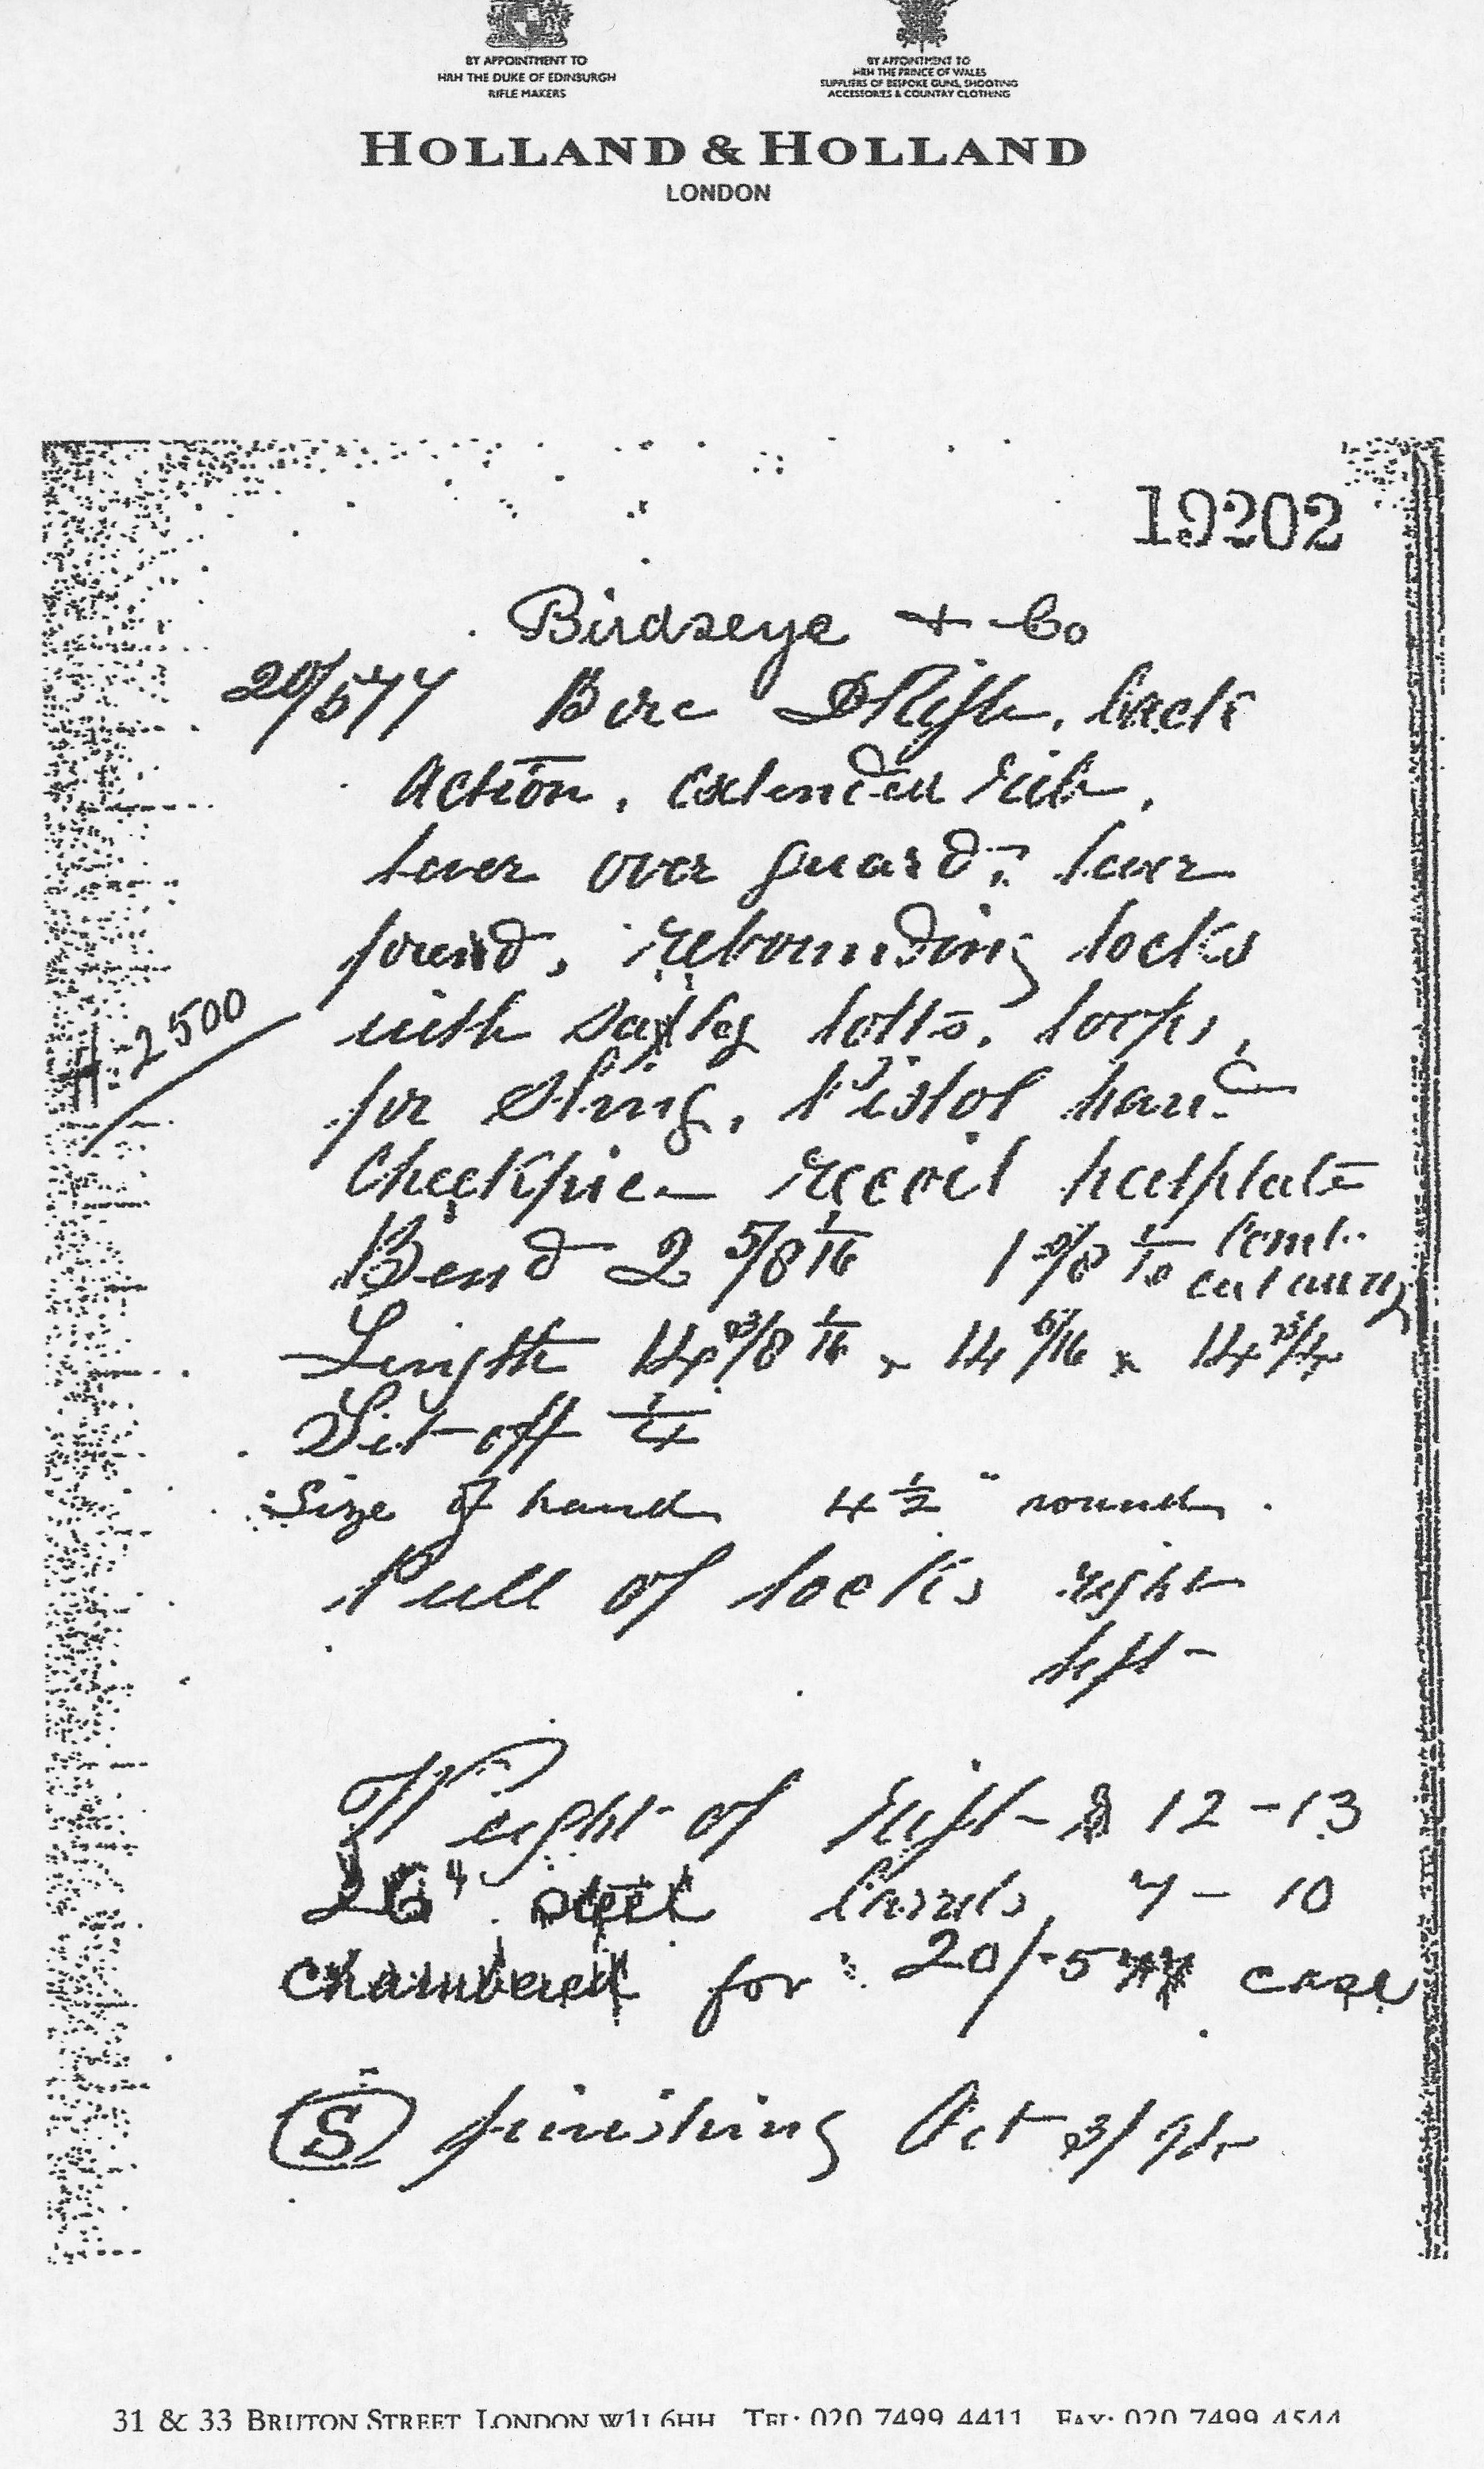 BY APPOINTMENT TO
HRH THE DUKE OF EDINBURGH
RIFLE MAKERS
BY APPOINTMENT TO
HRH THE PRINCE OF WALES
SUPPLIERS OF BESPOKE GUNS, SHOOTING
ACCESSORIES & COUNTRY CLOTHING
HOLLAND & HOLLAND
LONDON
19202
Birdseye & Co
20/577 Bore D Rifle, back
Action, extended rib,
lever over guard, lever
forend, rebounding locks
with safety bolts, loops,
2500
for sling, Pistol hand
Cheekpiece recoil heelplate
Bend 2 5/8 1/16 1 comb
Length 14 3/8 1/16 x 14 5/16 x 14 3/4
Set off 1/4
Size of hand 4 1/2" round
Pull of locks right
left
Weight of rifle 12 - 13
26" steel barrels 7 - 10
Chambered for 20/577 case
S finishing Oct 3/
31 & 33 BRUTON STREET LONDON W1J 6HH TEL: 020 7499 4411 FAX: 020 7499 4544